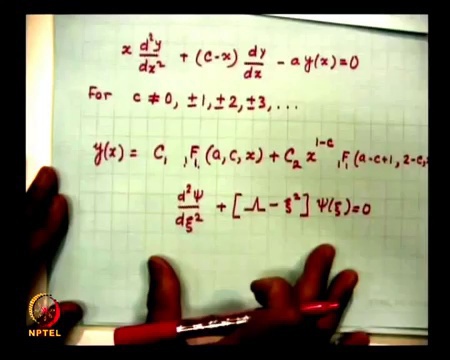 x d²y/dx² + (c-x) dy/dx - a y(x) = 0
For c ≠ 0, ±1, ±2, ±3, ...
y(x) = C₁ ₁F₁(a,c,x) + C₂ x^{1-c} ₁F₁(a-c+1, 2-c,
d²Ψ/dξ² + [Λ - ξ²] Ψ(ξ) = 0
NPTEL